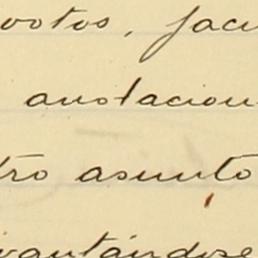 votos, facu
anotacion
tro asunto
vantándose